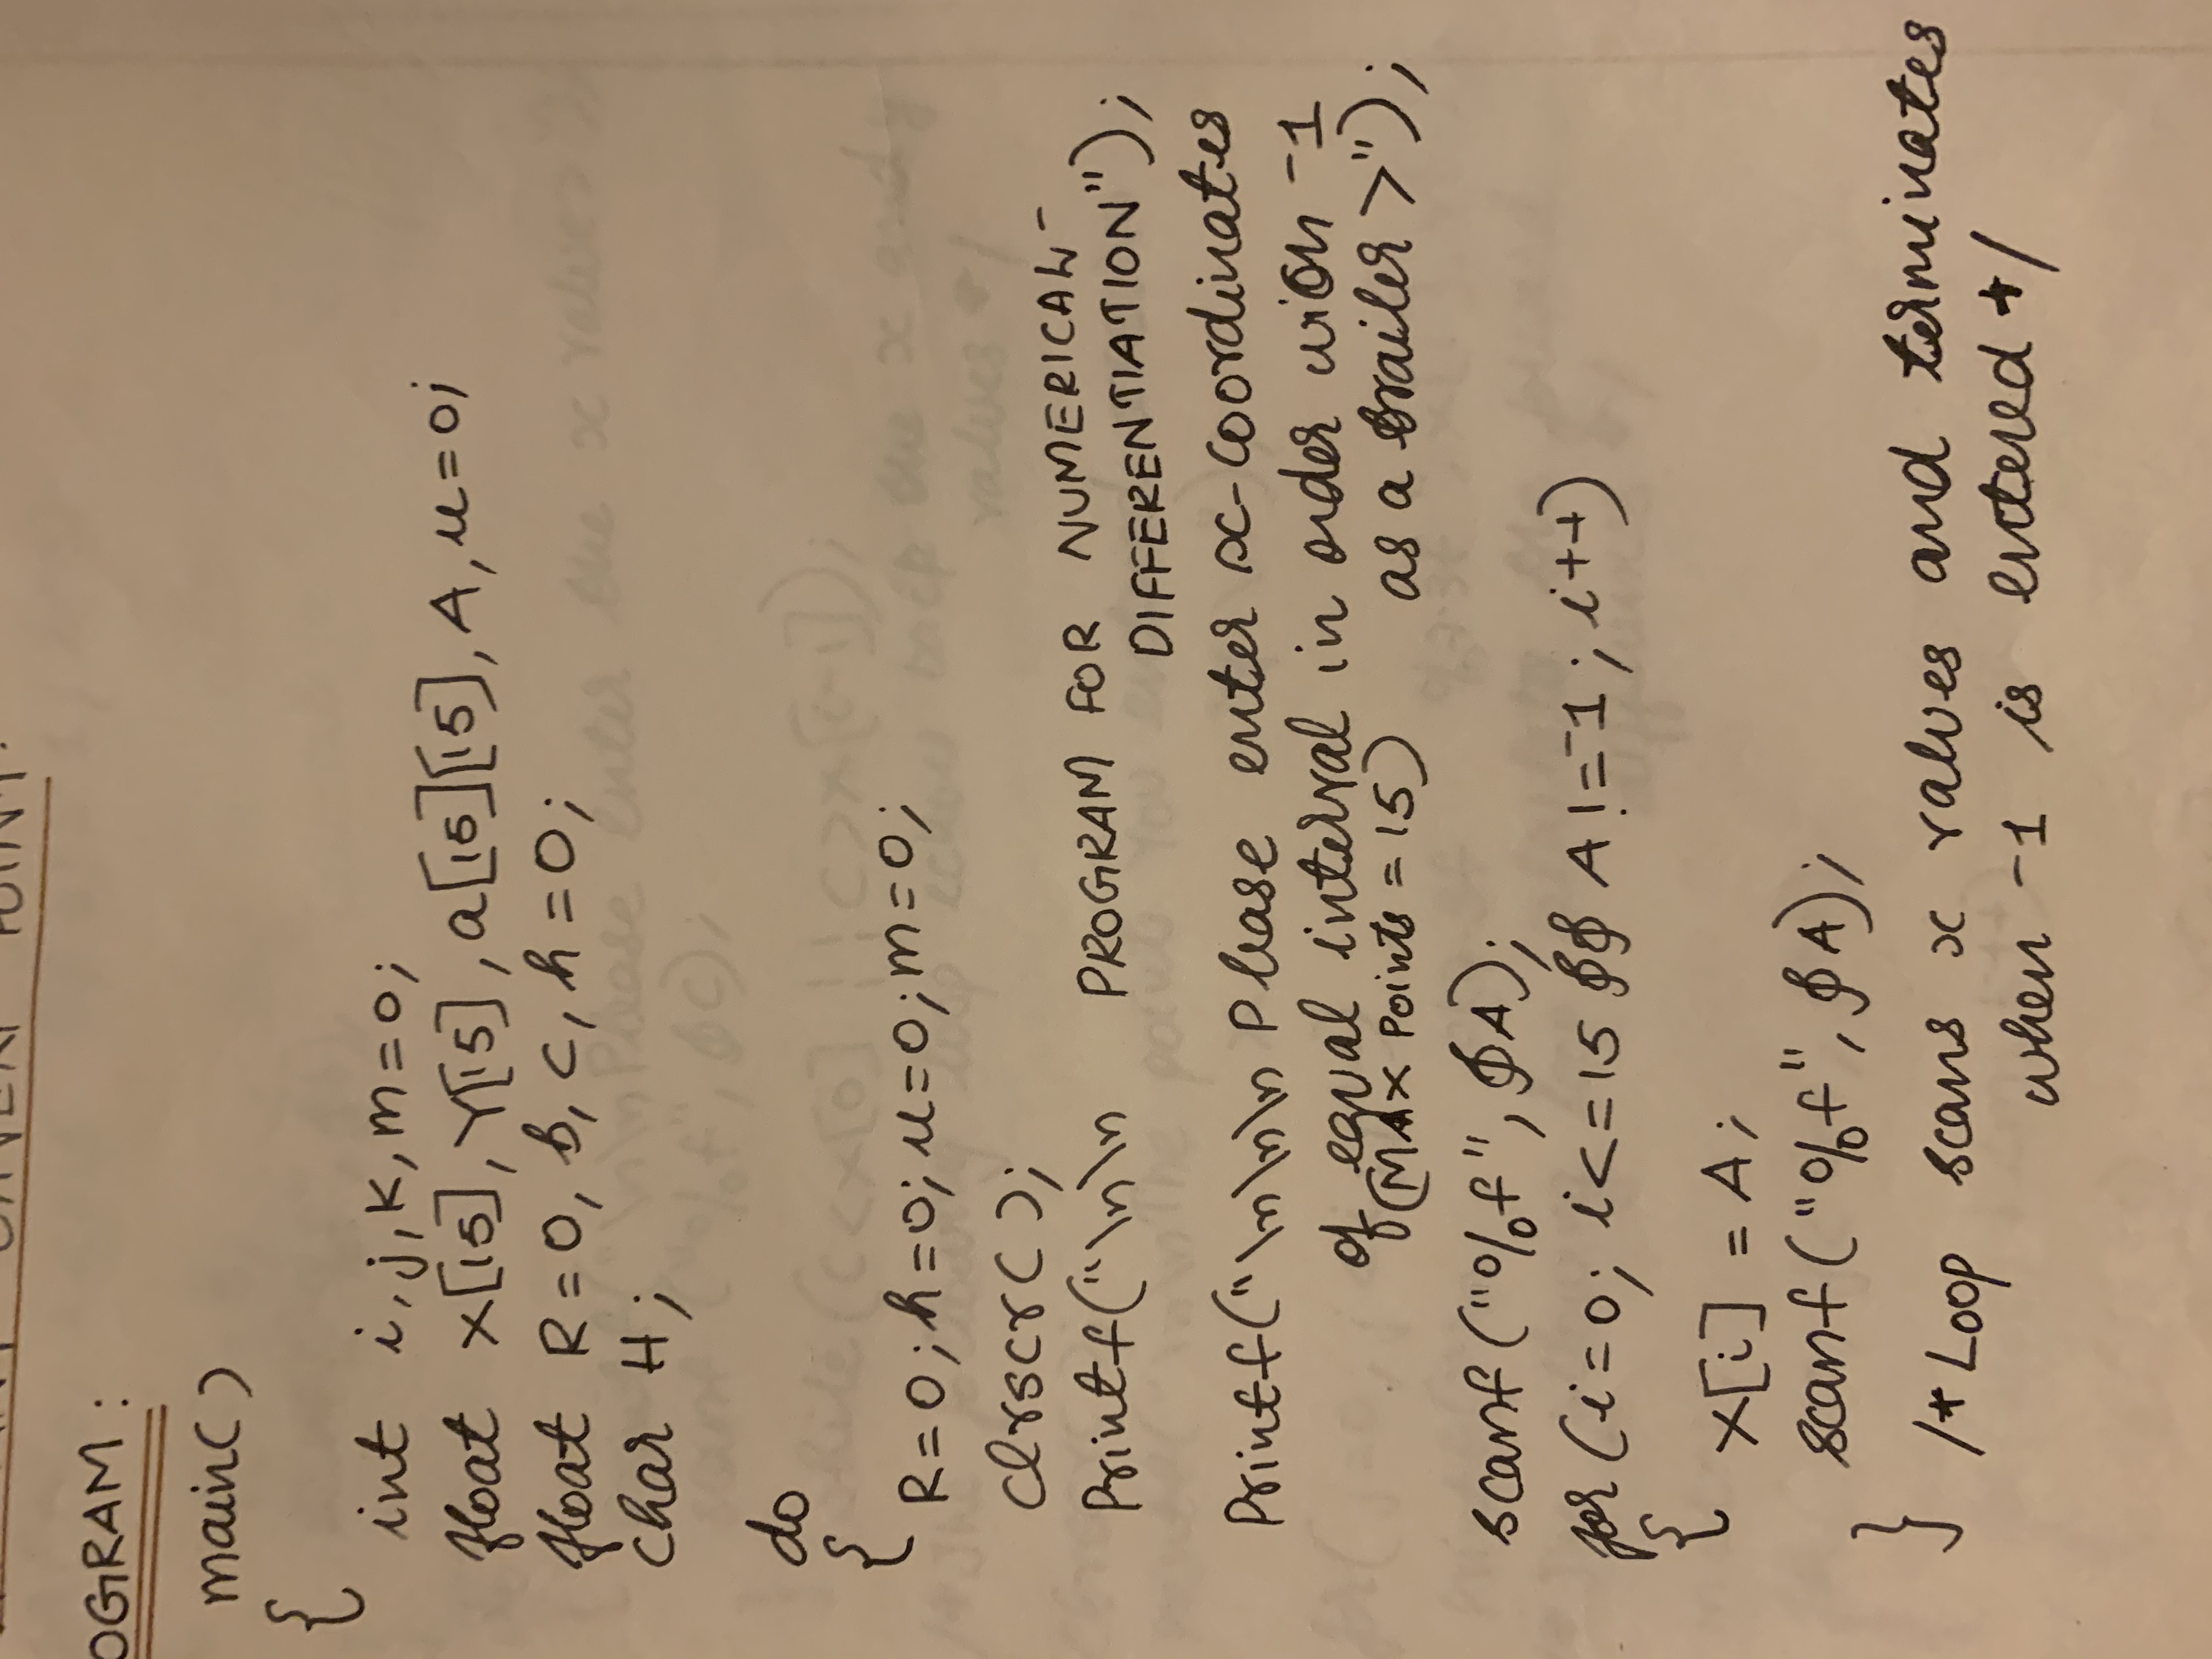 GIVEN POINT.
OGRAM :
main()
{
int i,j,k,m=0;
float x[15],Y[15],a[15][15],A,u=0;
float R=0,b,c,h=0;
char H;
do
{
R=0;h=0;u=0;m=0;
clrscr();
Printf("\n\n PROGRAM FOR NUMERICAL-
DIFFERENTIATION");
Printf("\n\n Please enter x-coordinates
of equal interval in order with -1
(MAX Points = 15) as a trailer >");
scanf("%f",&A);
for(i=0; i<=15 && A!=-1; i++)
{
x[i] = A;
scanf("%f",&A);
} /* Loop scans x values and terminates
when -1 is entered */